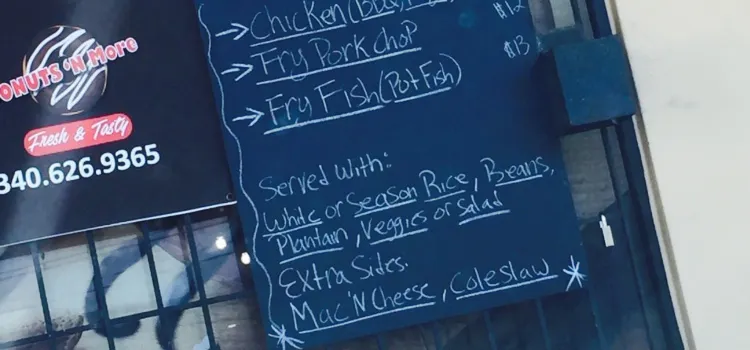 ONUTS 'N MORE
Fresh & Tasty
340.626.9365
→ Chicken (BBQ, $12
→ Fry Pork chop
$13
→ Fry Fish (Pot Fish)
Served With:
White or Season Rice, Beans,
Plantain, Veggies or Salad
Extra Sides.
Mac 'N Cheese, Coleslaw